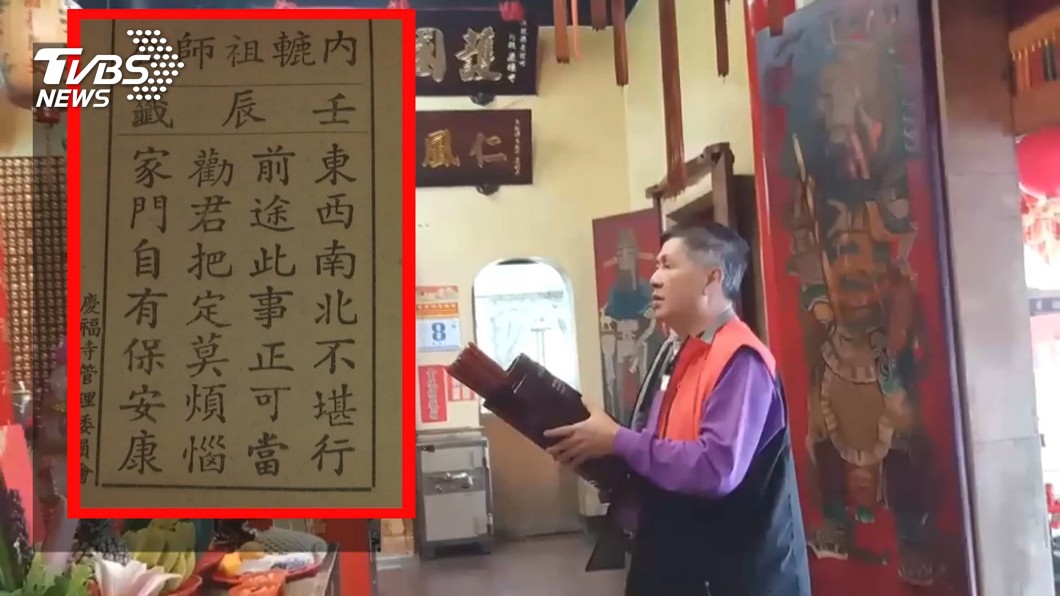 TVBS
NEWS
內轆祖師
壬辰籤
東西南北不堪行
前途此事正可當
勸君把定莫煩惱
家門自有保安康
慶福寺管理委員會
護國
仁風
8